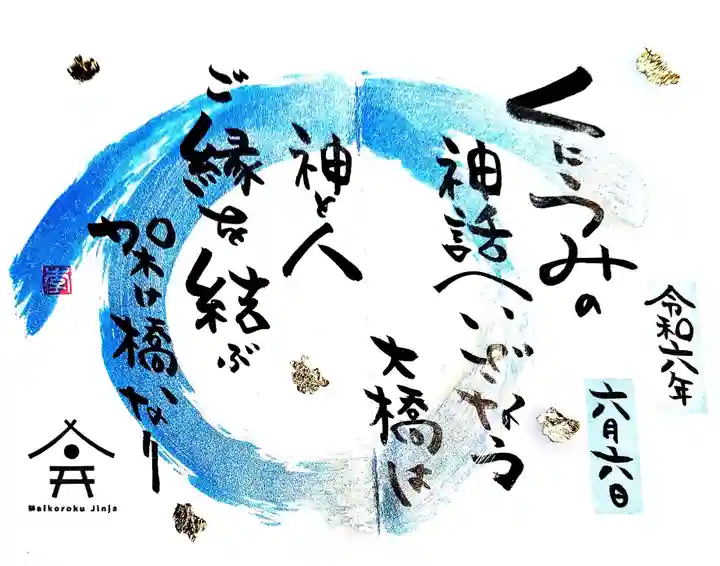 くにうみの
神話へいざなう
大橋は
神と人
ご縁を結ぶ
架け橋なり
令和六年
六月六日
Maikoroku Jinja